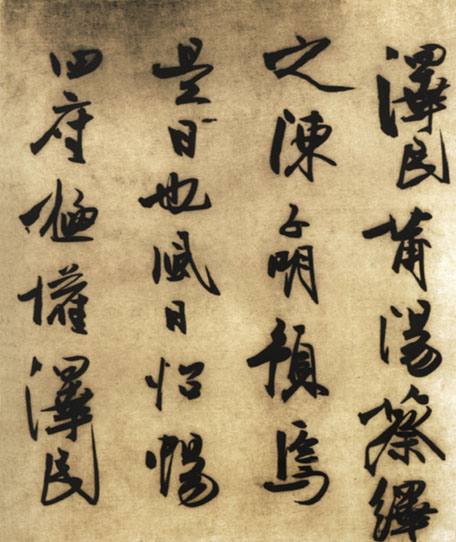 澤民莆陽蔡繹
之陳子明預焉
是日也風日怡暢
四座極懽澤民